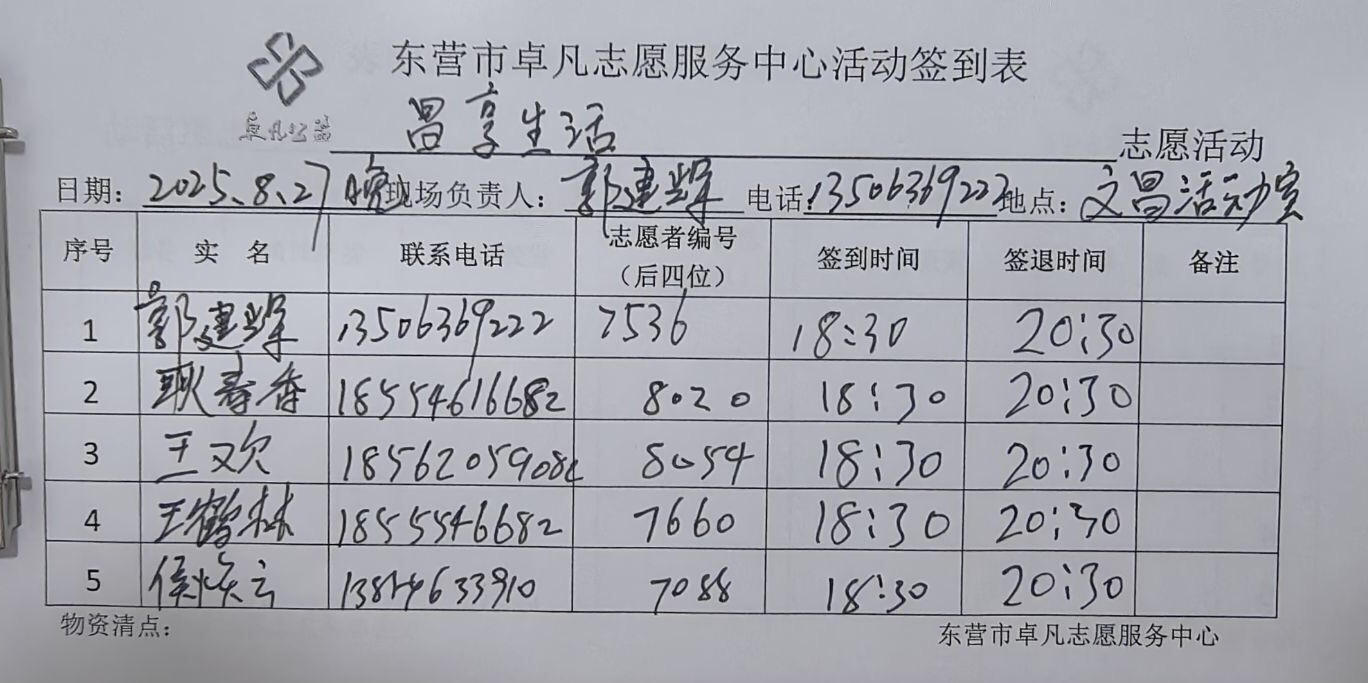 东营市卓凡志愿服务中心活动签到表
卓凡公益
昌享生活 志愿活动
日期: 2025.8.27晚 现场负责人: 郭建 电话: 13506369222 地点: 文昌活动室
序号 实 名 联系电话 志愿者编号(后四位) 签到时间 签退时间 备注
1 郭建 13506369222 7536 18:30 20:30
2 耿春香 18554616682 8020 18:30 20:30
3 王欢 8054 18:30 20:30
4 王鹤林 18555546682 7660 18:30 20:30
5 侯焕云 7088 18:30 20:30
物资清点: 东营市卓凡志愿服务中心